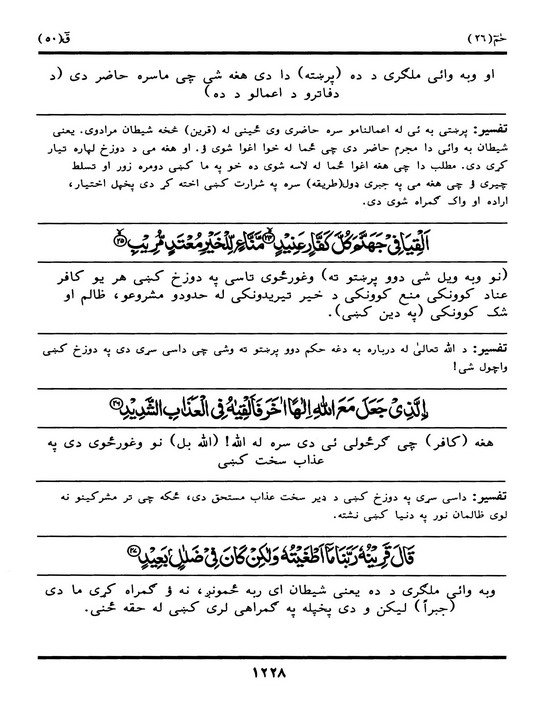 حٰمٓ(٢٦) قٓ(٥٠)
او وبه وائي ملگری د ده (پرښته) دا دی هغه شی چی ماسره حاضر دی (د
دفاترو د اعمالو د ده)
تفسیر: پرښتی به ئی له اعمالنامو سره حاضری وی ځینی له (قرین) څخه شیطان مرادوی. یعنی
شیطان به وائی دا مجرم حاضر دی چی ځما له خوا اغوا شوی ؤ. او هغه می د دوزخ لپاره تیار
کړی دی. مطلب دا چی هغه اغوا ځما له لاسه شوی ده خو په ما کښی دومره زور او تسلط
چیری ؤ چی هغه می په جبری ډول(طریقه) سره په شرارت کښی اخته کړ دی پخپل اختیار،
اراده او واک گمراه شوی دی.
اَلْقِيَا فِيْ جَهَنَّمَ كُلَّ كَفَّارٍ عَنِيْدٍ ﴿٢٤﴾ مَّنَّاعٍ لِّلْخَيْرِ مُعْتَدٍ مُّرِيْبٍ ﴿٢٥﴾
(نو وبه ویل شی دوو پرښتو ته) وغورځوی تاسی په دوزخ کښی هر یو کافر
عناد کوونکی منع کوونکی د خیر تیریدونکی له حدودو مشروعو، ظالم او
شک کوونکی (په دین کښی).
تفسیر: د الله تعالیٰ له درباره به دغه حکم دوو پرښتو ته وشی چی داسی سړی دی په دوزخ کښی
واچول شی!
اِلَّذِيْ جَعَلَ مَعَ اللّٰهِ اِلٰهًا اٰخَرَ فَاَلْقِيٰهُ فِي الْعَذَابِ الشَّدِيْدِ ﴿٢٦﴾
هغه (کافر) چی گرځولی ئی دی سره له الله! (الله بل) نو وغورځوی دی په
عذاب سخت کښی
تفسیر: داسی سړی په دوزخ کښی د ډیر سخت عذاب مستحق دی، ځکه چی تر مشرکینو نه
لوی ظالمان نور په دنیا کښی نشته.
قَالَ قَرِيْنُهٗ رَبَّنَا مَآ اَطْغَيْتُهٗ وَلٰكِنْ كَانَ فِيْ ضَلٰلٍۭ بَعِيْدٍ ﴿٢٧﴾
وبه وائی ملگری د ده یعنی شیطان ای ربه ځمونږ، نه ؤ گمراه کړی ما دی
(جبراً) لیکن و دی پخپله په گمراهی لری کښی له حقه ځنی.
١٢٢٨